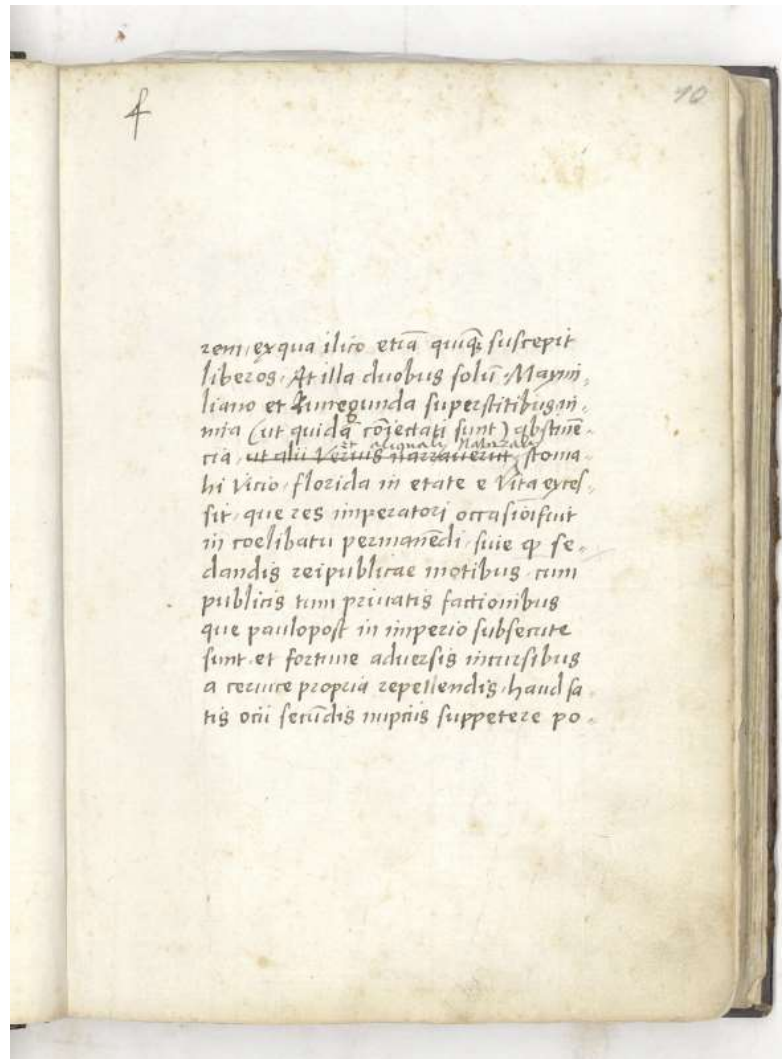 4
10
rem, ex qua ilico etiā quiq̃ suscepit
liberos. At illa duobus solū Maxmi,
liano et Kunegunda superstitibus, ni,
mia (ut quidā cōiectati sunt) abstinē,
et aliquali
cia, ut alii verius narraverūt, stoma,
hi vicio, florida in etate e vita exces,
sit, que res imperatori occasiōi fuit
in coelibatu permanēdi, siue ꝙ se,
dandis reipublicae motibus, cum
publicis tum priuatis factionibus
que paulopost in imperio subsecute
sunt, et fortune adversis incursibus
a ceruice propria repellendis, haud sa,
tis ocii secūdis nuptiis suppetere po,